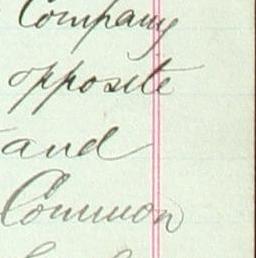 Company
opposite
and
Common